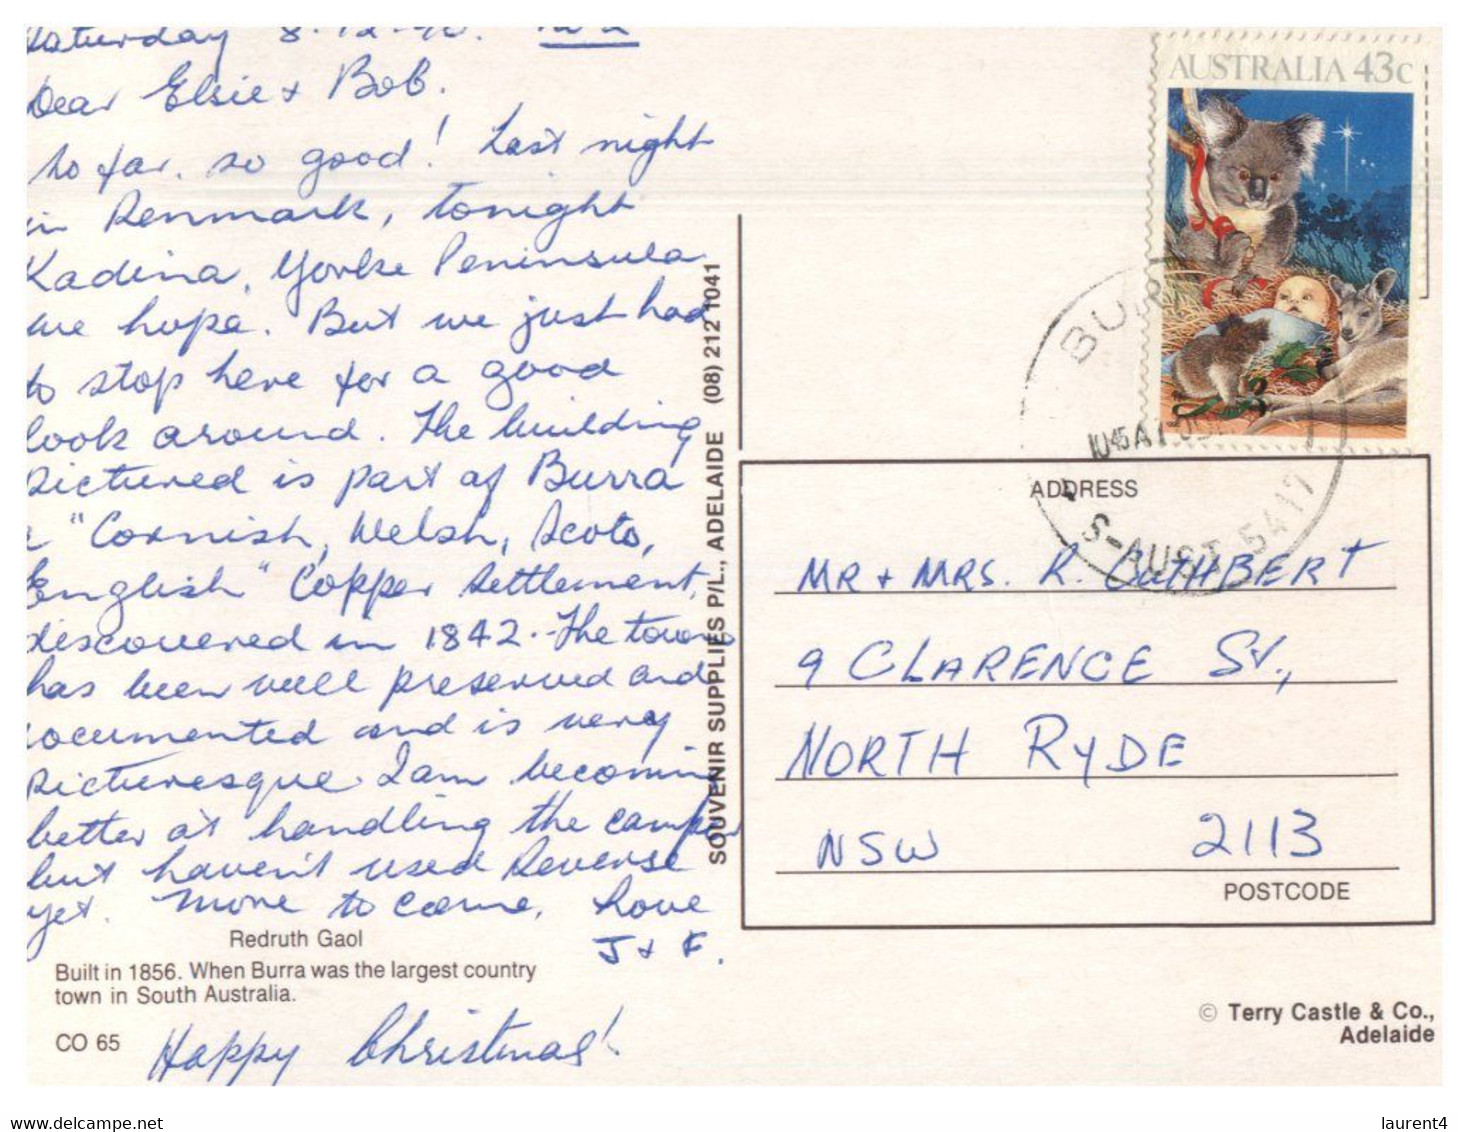 Saturday 8-12-90.
Dear Elsie & Bob.
So far, so good! Last night
in Renmark, tonight
Kadina, Yorke Peninsula
we hope. But we just had
to stop here for a good
look around. The building
pictured is part of Burra
a "Cornish, Welsh, Scots,
English" Copper settlement,
discovered in 1842. The town
has been well preserved and
documented and is very
picturesque. I am becoming
better at handling the camper
but haven't used Reverse
yet. More to come. Love
J & F.
Redruth Gaol
Built in 1856. When Burra was the largest country
town in South Australia.
CO 65
Happy Christmas!
SOUVENIR SUPPLIES P/L., ADELAIDE (08) 212 1041
AUSTRALIA 43c
BURRA
1045A
S-AUST 5417
ADDRESS
MR & MRS. R. CUTHBERT
9 CLARENCE ST.,
NORTH RYDE
NSW 2113
POSTCODE
© Terry Castle & Co.,
Adelaide
www.delcampe.net
laurent4